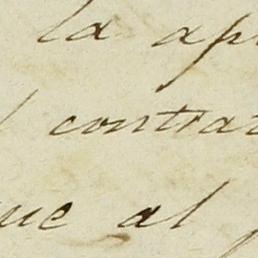 la ap
contrat
que al